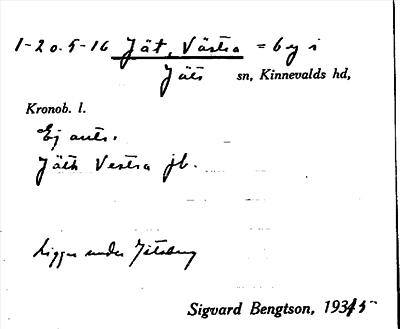 1-2 o. 5-16 Jät, Västra = by i
Jäts sn, Kinnevalds hd,
Kronob. l.
Ej antr.
Jäth Vestra jb.
Ligger under Jätsberg
Sigvard Bengtson, 1935